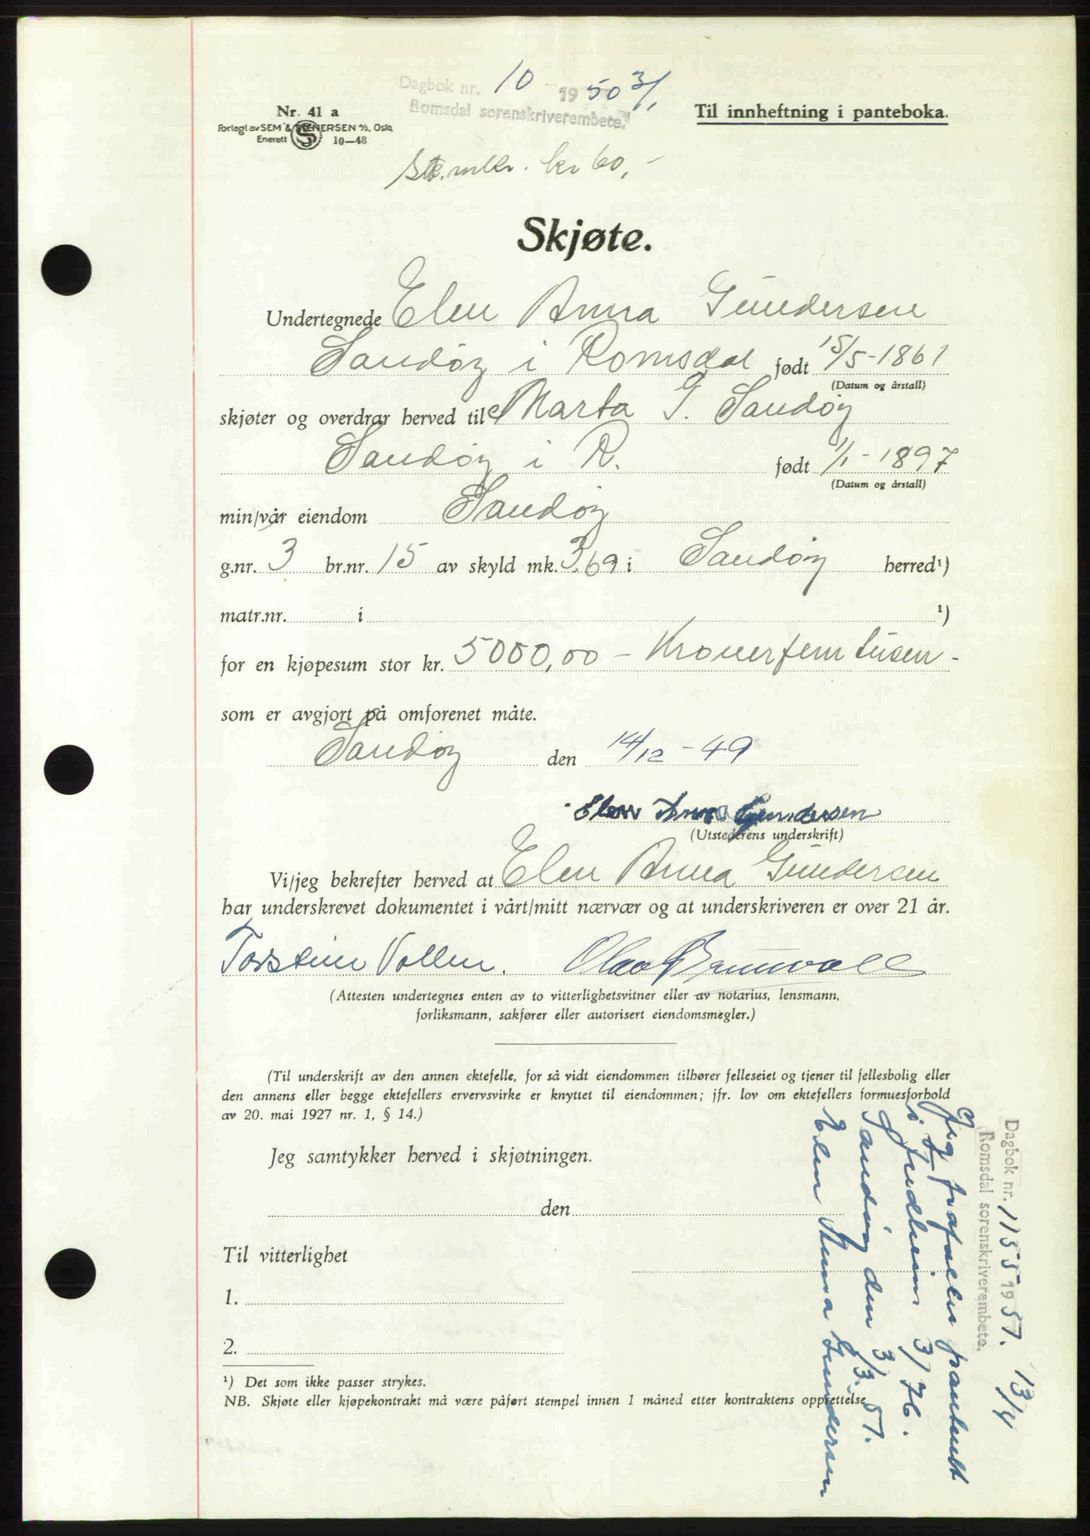 Dagbok nr. 10 1950 3/1
Romsdal sorenskriverembete.
Nr. 41 a
Forlagt av SEM & STENERSEN A/S, Oslo
Enerett 10—48
Til innheftning i panteboka.
St.mkr. kr 60,-
Skjøte.
Undertegnede Elen Anna Gundersen
Sandøy i Romsdal født 15/5-1861
(Datum og årstall)
skjøter og overdrar herved til Marta G. Sandøy
Sandøy i R. født 1/1-1897
(Datum og årstall)
min/vår eiendom Sandøy
g.nr. 3 br.nr. 15 av skyld mk. 3.69 i Sandøy herred¹)
matr.nr. i ¹)
for en kjøpesum stor kr. 5000,00 - Kroner fem tusen -
som er avgjort på omforenet måte.
Sandøy den 14/12-49
Elen Anna Gundersen
(Utstederens underskrift)
Vi/jeg bekrefter herved at Elen Anna Gundersen
har underskrevet dokumentet i vårt/mitt nærvær og at underskriveren er over 21 år.
Torstein Vollen. Olav
(Attesten undertegnes enten av to vitterlighetsvitner eller av notarius, lensmann,
forliksmann, sakfører eller autorisert eiendomsmegler.)
(Til underskrift av den annen ektefelle, for så vidt eiendommen tilhører felleseiet og tjener til fellesbolig eller
den annens eller begge ektefellers ervervsvirke er knyttet til eiendommen; jfr. lov om ektefellers formuesforhold
av 20. mai 1927 nr. 1, § 14.)
Jeg samtykker herved i skjøtningen.
den
Til vitterlighet
1.
2.
¹) Det som ikke passer strykes.
NB. Skjøte eller kjøpekontrakt må være påført stempel innen 1 måned etter kontraktens opprettelse.
Dagbok nr. 1155 1951. 13/4
Romsdal sorenskriverembete.
Jeg frafaller pantealt
i 3/76.
Sandøy den 3/3.51.
Elen Anna Gundersen